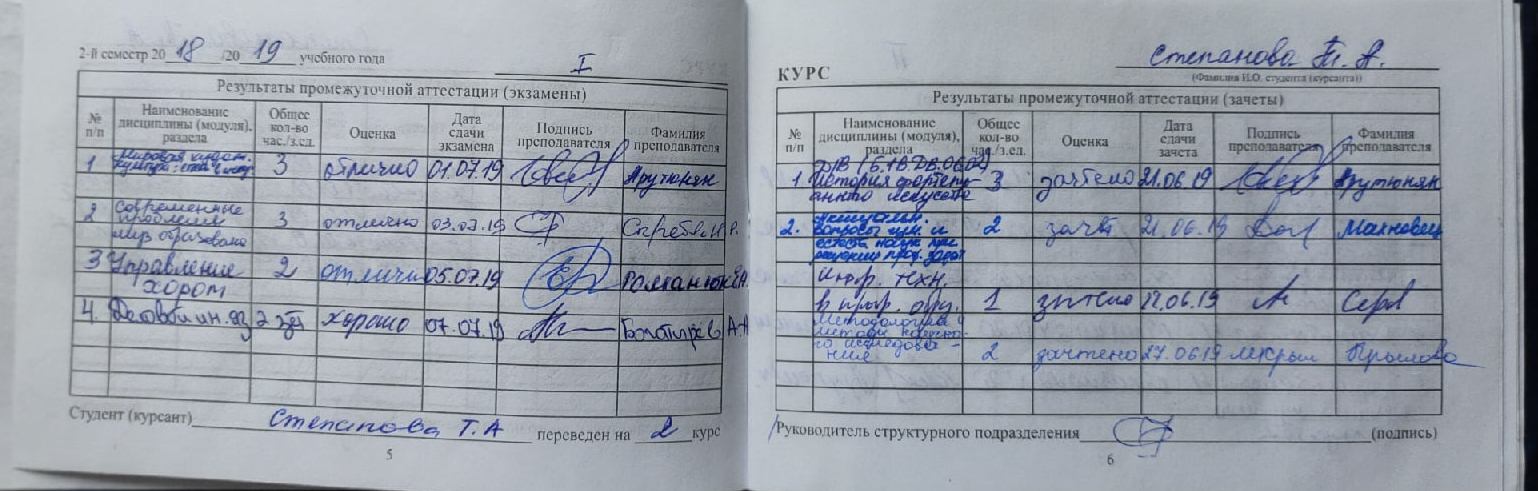 2-й семестр 2018/2019 учебного года I
Результаты промежуточной аттестации (экзамены)
№ п/п Наименование дисциплины (модуля), раздела Общее кол-во час./з.ед. Оценка Дата сдачи экзамена Подпись преподавателя Фамилия преподавателя
1 Мировая худож. культура: 3 отлично 01.07.19 Арутюнян
2 Современные проблемы 3 отлично 03.07.19
3 Управление хором 2 отлично 05.07.19 Романюк
4. Деловой ин. яз 2 хорошо 07.07.19 А.А
Студент (курсант) Степанова Т.А переведен на 2 курс
5
КУРС Степанова Т. А.
(Фамилия И.О. студента (курсанта))
Результаты промежуточной аттестации (зачеты)
№ п/п Наименование дисциплины (модуля), раздела Общее кол-во час./з.ед. Оценка Дата сдачи зачета Подпись преподавателя Фамилия преподавателя
1 История фортепианного искусства 3 зачтено 21.06.19 Арутюнян
2. Актуальн. вопросы гум. и естеств. наук при решении проф. задач 2 зачт 21.06.19 Махновец
Инф. техн. в проф. 1 зачтено .06.19
Методология и методы научного исследования 2 зачтено 27.06.19
Руководитель структурного подразделения (подпись)
6